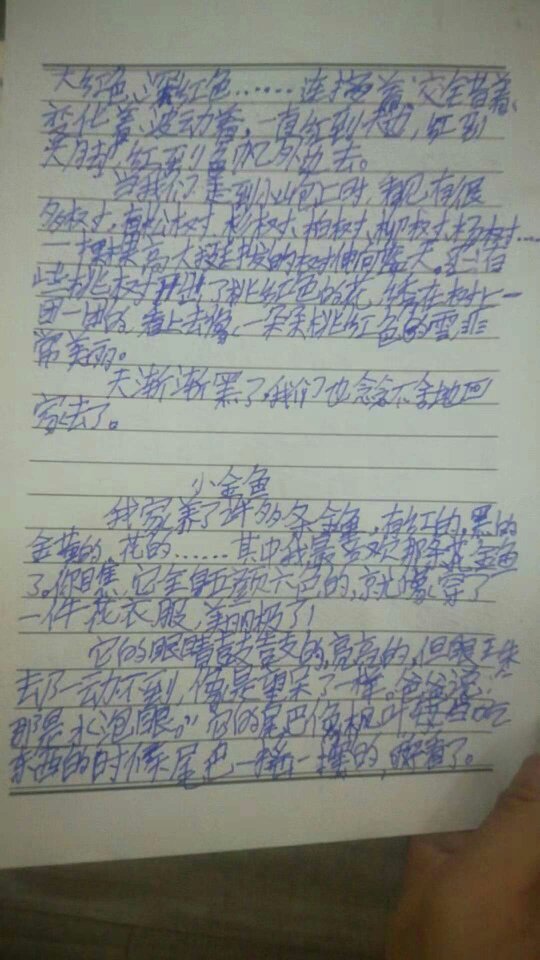 大红色、深红色……连接着、交错着、
变化着、波动着。一直红到天边，红到
天脚，红到
当我们走到小山包上时，看见有很
多树，有松树、杉树、柏树、柳树、杨树……
一棵棵高大挺拔的树伸向蓝天。还有
些桃树开出了桃红色的花，绕在树上一
团一团的，看上去像一朵朵桃红色的雪非
常美丽。
天渐渐黑了，我们也念念不舍地回
家去了。
小金鱼
我家养了许多条金鱼，有红的，黑的
金黄的，花的……其中我最喜欢那条花金鱼
了。你瞧，它全身五颜六色的，就像穿了
一件花衣服，美丽极了！
它的眼睛鼓鼓的，亮亮的，但眼珠
去了一动不到，像是望呆了一样。爸爸说：“
那是水泡眼。”它的尾巴像枫叶
东西的时候尾巴一摇一摆的，好看了。